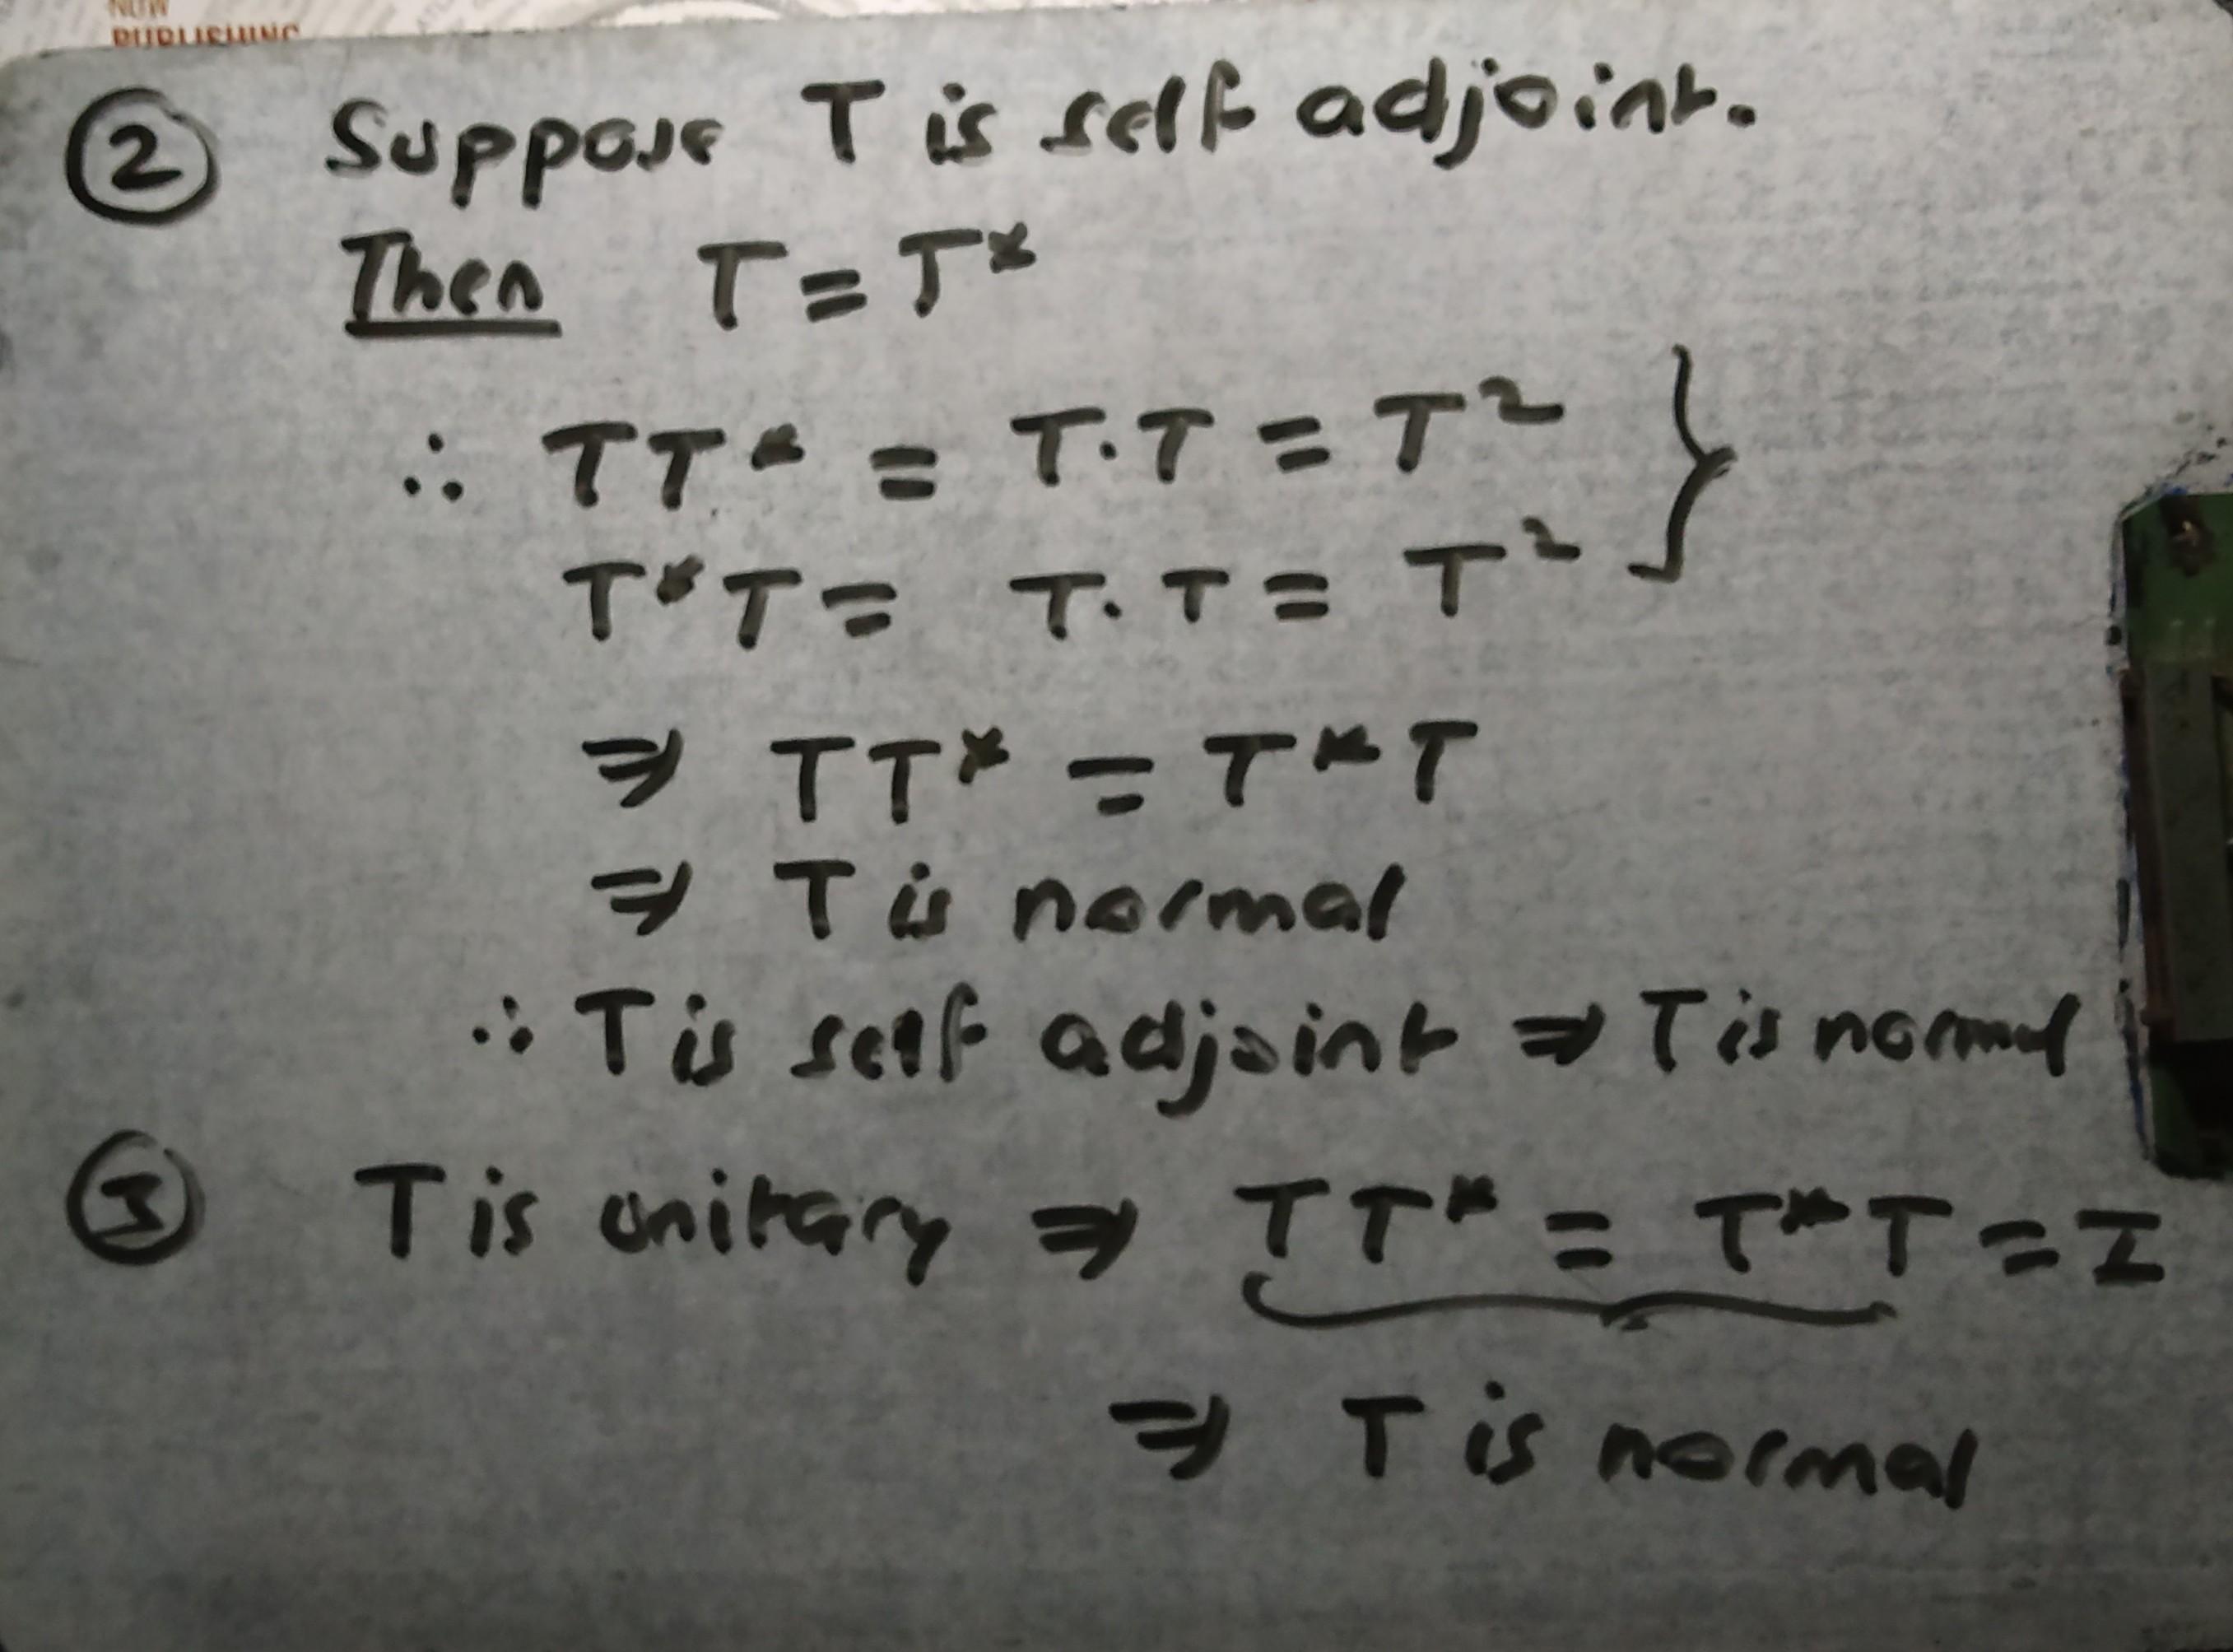 NOW
PUBLISHING
② Suppose T is self adjoint.
Then T = T*
∴ TT* = T.T = T²
T*T = T.T = T²
⇒ TT* = T*T
⇒ T is normal
∴ T is self adjoint ⇒ T is normal
③ T is unitary ⇒ TT* = T*T = I
⇒ T is normal